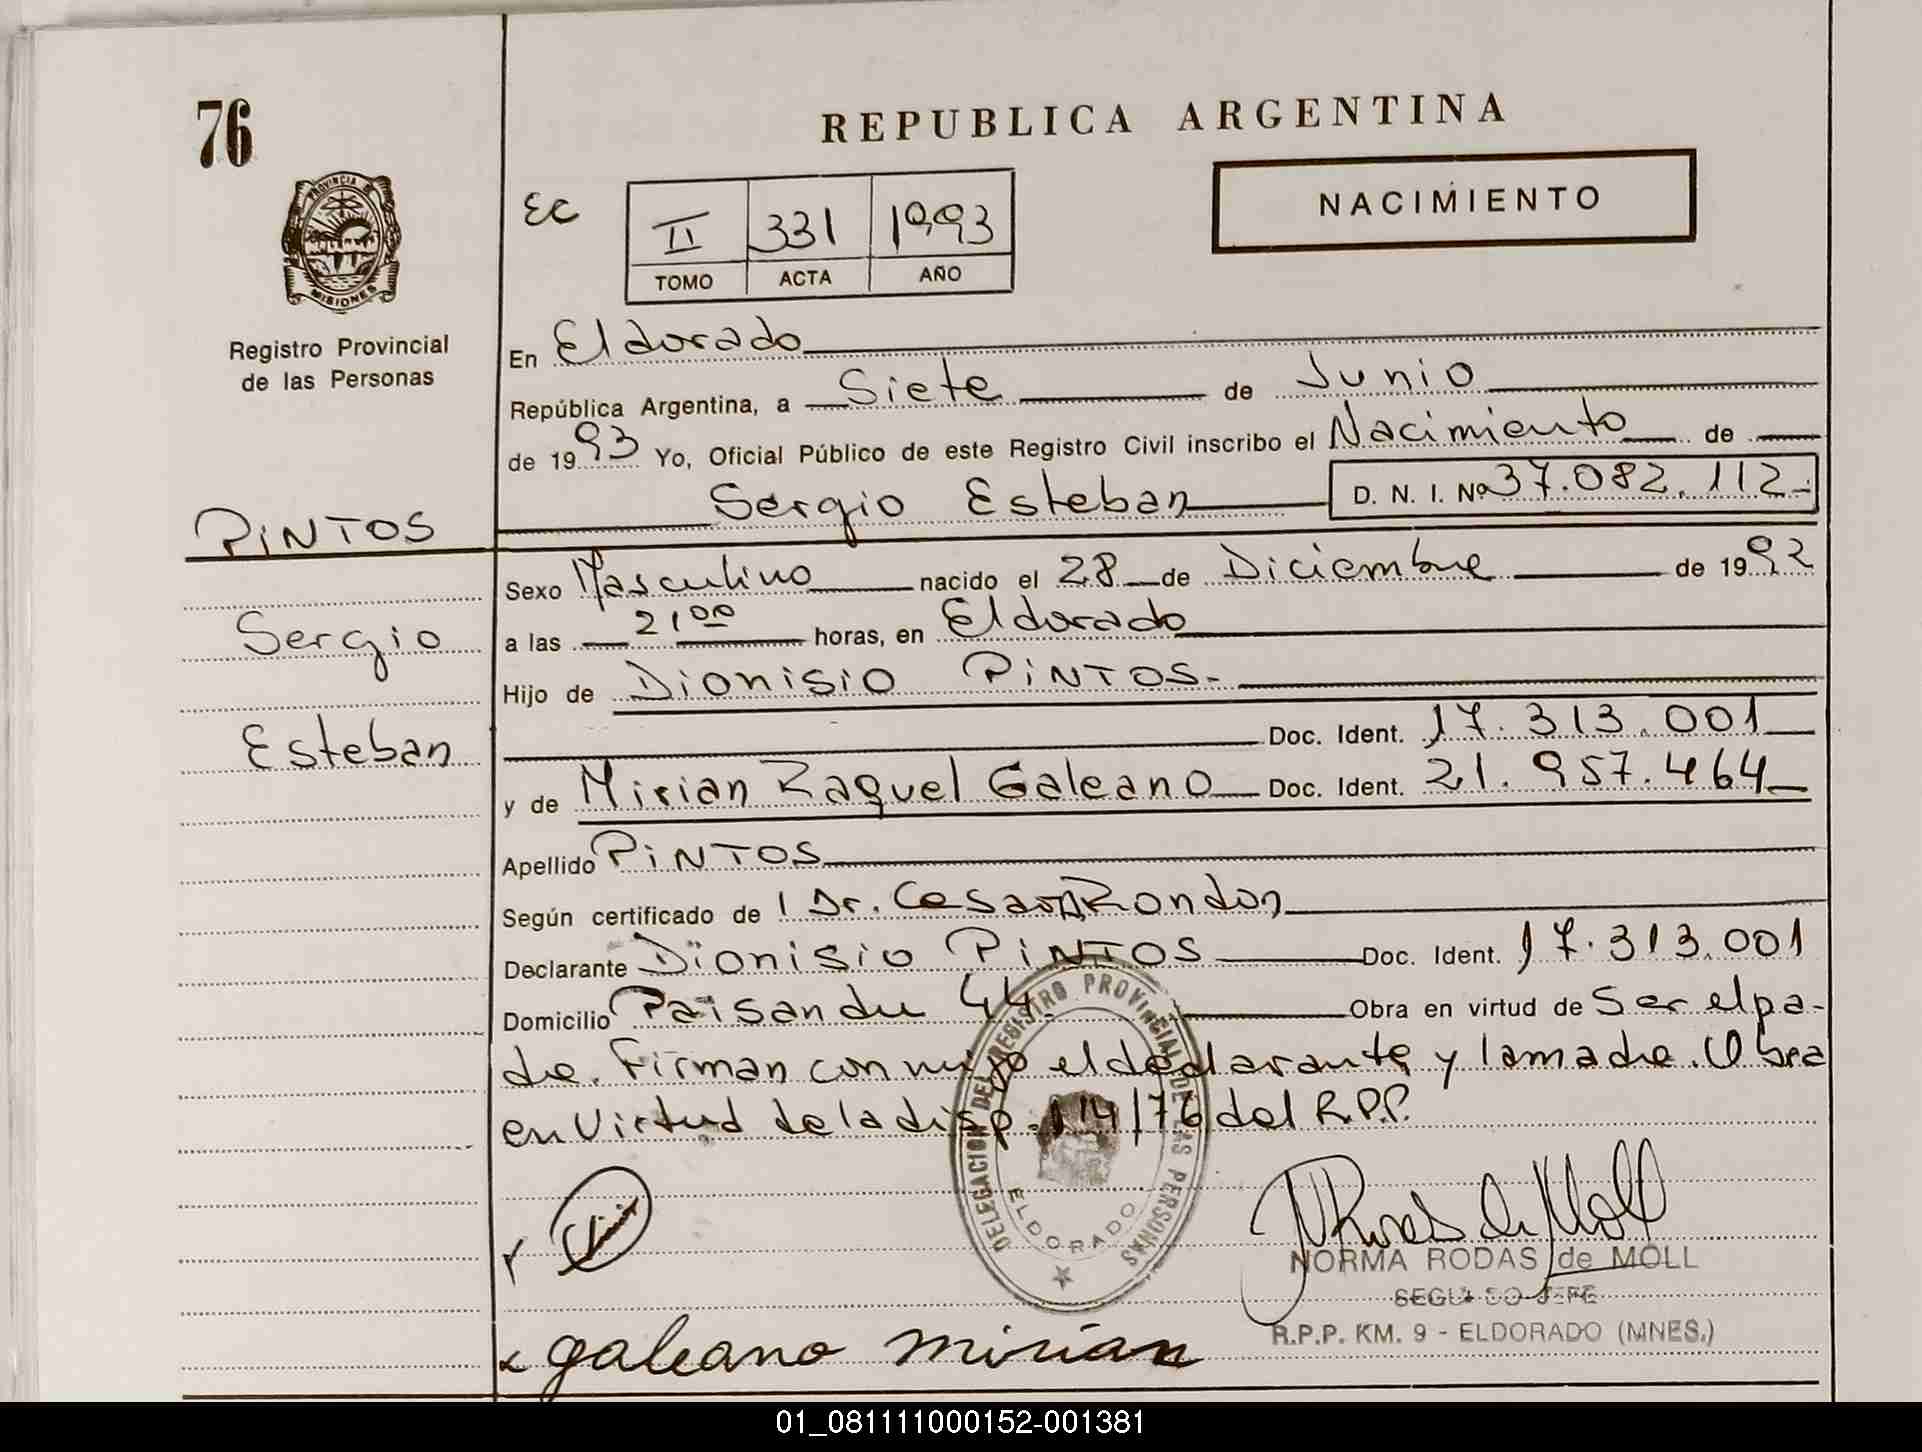 76
REPUBLICA ARGENTINA
NACIMIENTO
EC
II 331 1993
TOMO ACTA AÑO
PROVINCIA DE MISIONES
Registro Provincial
de las Personas
En Eldorado
República Argentina, a Siete de Junio
de 1993 Yo, Oficial Público de este Registro Civil inscribo el Nacimiento de
Sergio Esteban D. N. I. Nº 37.082.112-
PINTOS
Sergio
Esteban
Sexo Masculino nacido el 28 de Diciembre de 1992
a las 21 00 horas, en Eldorado
Hijo de Dionisio PINTOS-
Doc. Ident. 17.313.001
y de Mirian Raquel Galeano Doc. Ident. 21.957.464
Apellido PINTOS
Según certificado de Dr. Cesar Rondon
Declarante Dionisio PINTOS Doc. Ident. 17.313.001
Domicilio Paisandu 44. Obra en virtud de Ser el pa-
dre. Firman conmigo el declarante y la madre. Obra
en Virtud de la disp. 114/76 del R.P.P.
DELEGACION DEL REGISTRO PROVINCIAL DE LAS PERSONAS
ELDORADO
NORMA RODAS de MOLL
SEGUNDO JEFE
R.P.P. KM. 9 - ELDORADO (MNES.)
galeano mirian
01_081111000152-001381